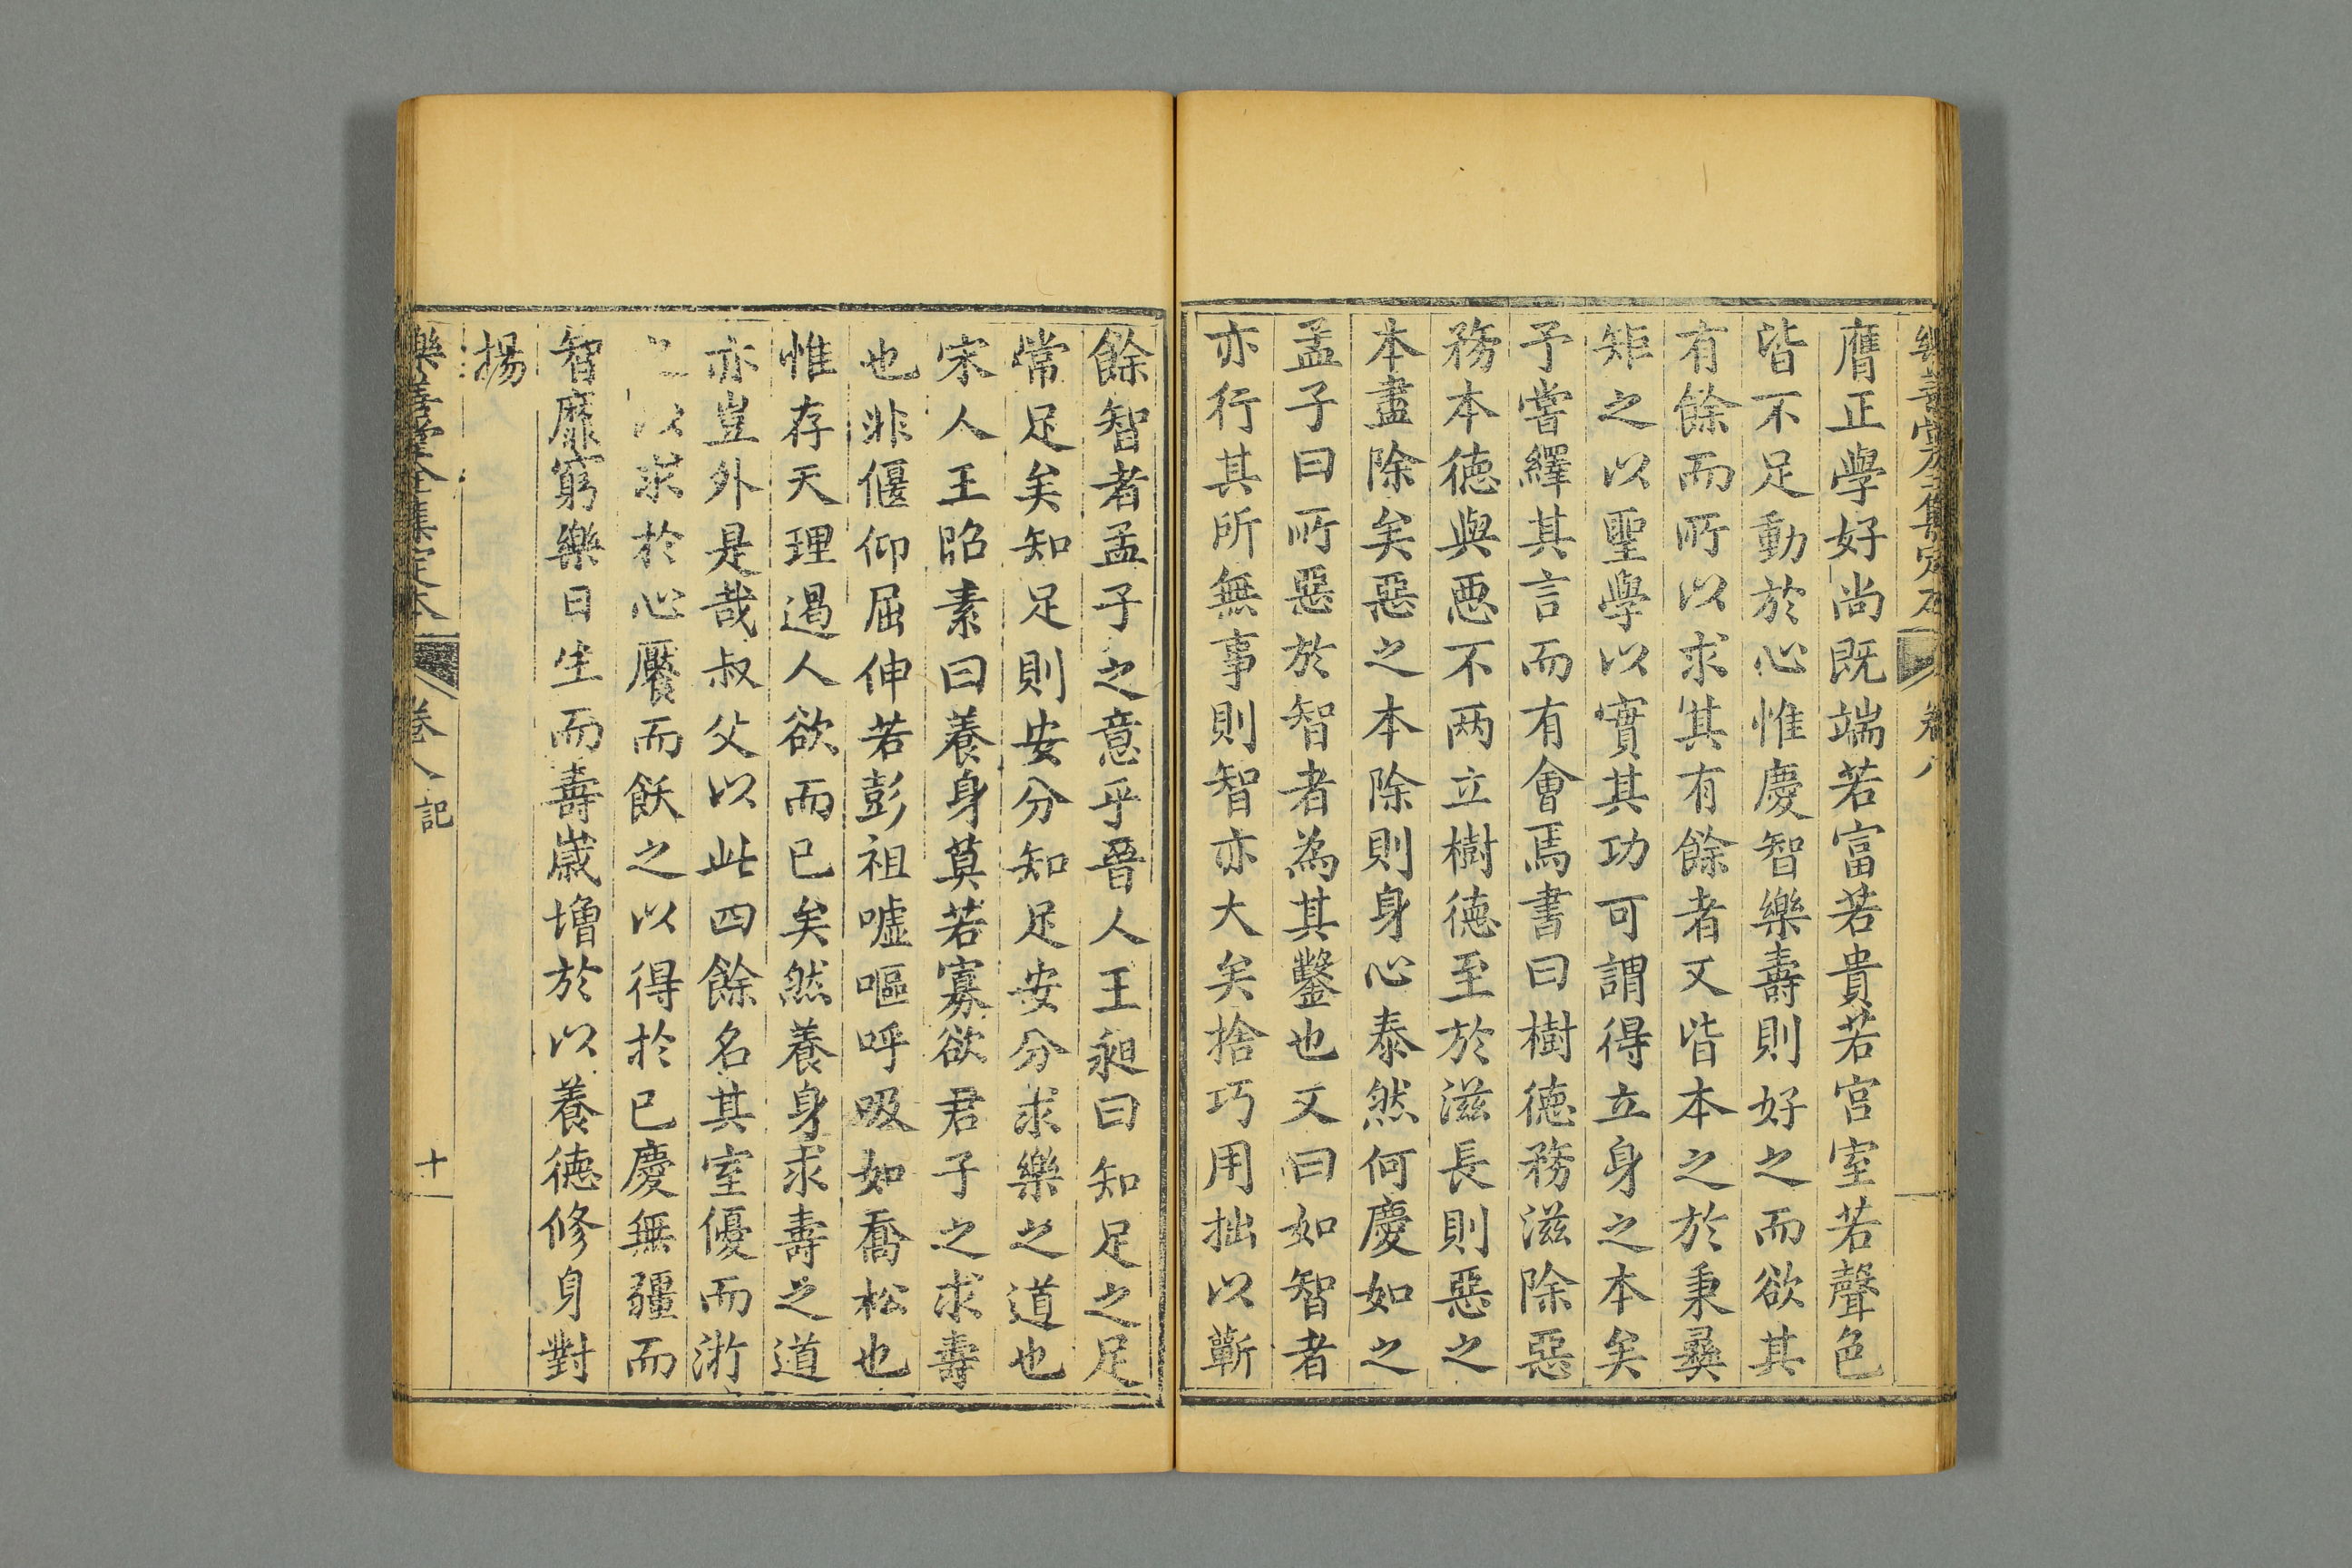 膺正學好尚既端若富若貴若宮室若聲色
皆不足動於心惟慶智樂壽則好之而欲其
有餘而所以求其有餘者又皆本之於秉彝
矩之以聖學以實其功可謂得立身之本矣
予嘗繹其言而有會焉書曰樹德務滋除惡
務本德與惡不兩立樹德至於滋長則惡之
本盡除矣惡之本除則身心泰然何慶如之
孟子曰所惡於智者為其鑿也又曰如智者
亦行其所無事則智亦大矣捨巧用拙以蘄
餘智者孟子之意乎晉人王昶曰知足之足
常足矣知足則安分知足安分求樂之道也
宋人王昭素曰養身莫若寡欲君子之求壽
也非偃仰屈伸若彭祖噓嘔呼吸如喬松也
惟存天理遏人欲而已矣然養身求壽之道
亦豈外是哉叔父以此四餘名其室優而游
之以求於心饜而飫之以得於已慶無疆而
智靡窮樂日生而壽歲增於以養德修身對
揚
樂善堂全集定本 卷八 記 十